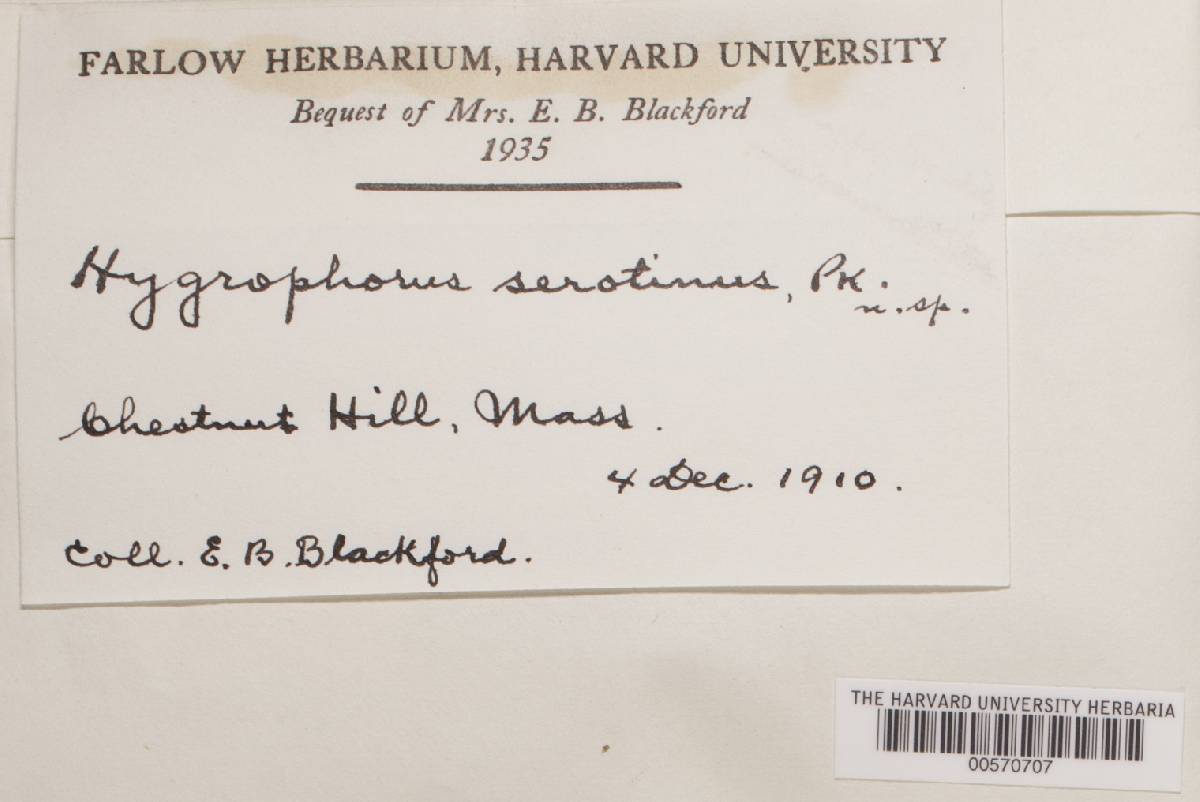 FARLOW HERBARIUM, HARVARD UNIVERSITY
Bequest of Mrs. E. B. Blackford
1935
Hygrophorus serotinus, Pk.
n. sp.
Chestnut Hill, Mass.
4 Dec. 1910.
Coll. E. B. Blackford.
THE HARVARD UNIVERSITY HERBARIA
00570707